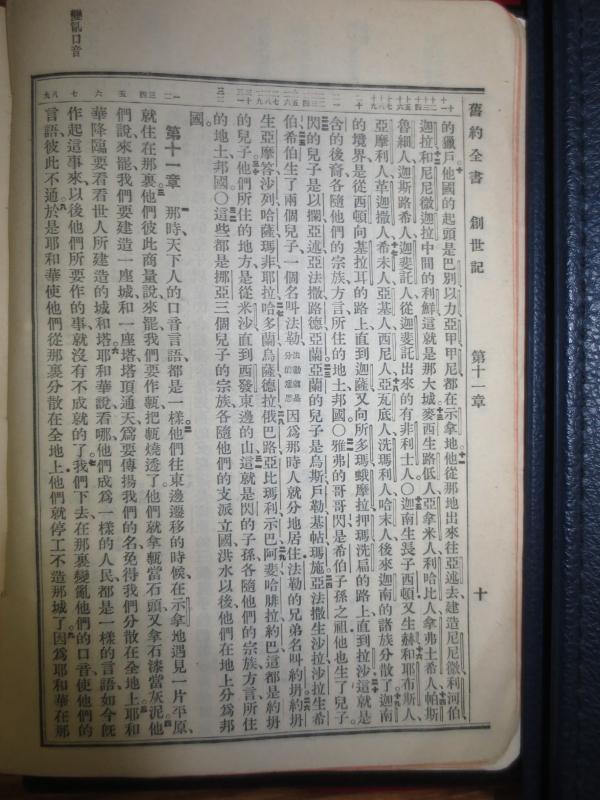 舊約全書 創世記 第十一章 十
的獵戶他國的起頭是巴別以力亞甲甲尼都在示拿地他從那地出來往亞述去建造尼尼微利河伯
迦拉和尼尼微迦拉中間的利鮮這就是那大城麥西生路低人亞拿米人利哈比人拿弗土希人帕斯
魯細人迦斯路希人迦斐託人從迦斐託出來的有非利士人〇迦南生長子西頓又生赫和耶布斯人
亞摩利人革迦撒人希未人亞基人西尼人亞瓦底人洗瑪利人哈末人後來迦南的諸族分散了迦南
的境界是從西頓向基拉耳的路上直到迦薩又向所多瑪蛾摩拉押瑪洗扁的路上直到拉沙這就是
含的後裔各隨他們的宗族方言所住的地土邦國〇雅弗的哥哥閃是希伯子孫之祖他也生了兒子
閃的兒子是以攔亞述亞法撒路德亞蘭亞蘭的兒子是烏斯戶勒基帖瑪施亞法撒生沙拉沙拉生希
伯希伯生了兩個兒子一個名叫法勒法勒就是分的意思因爲那時人就分地居住法勒的兄弟名叫約坍約坍
生亞摩答沙列哈薩瑪非耶拉哈多蘭烏薩德拉俄巴路亞比瑪利示巴阿斐哈腓拉約巴這都是約坍
的兒子他們所住的地方是從米沙直到西發東邊的山這就是閃的子孫各隨他們的宗族方言所住
的地土邦國〇這些都是挪亞三個兒子的宗族各隨他們的支派立國洪水以後他們在地上分爲邦
國。
第十一章 那時天下人的口音言語都是一樣他們往東邊遷移的時候在示拿地遇見一片平原、
就住在那裏他們彼此商量說來罷我們要作甎把甎燒透了他們就拿甎當石頭又拿石漆當灰泥他
們說來罷我們要建造一座城和一座塔塔頂通天爲要傳揚我們的名免得我們分散在全地上耶和
華降臨要看看世人所建造的城和塔耶和華說看哪他們成爲一樣的人民都是一樣的言語如今既
作起這事來以後他們所要作的事就沒有不成就的了我們下去在那裏變亂他們的口音使他們的
言語彼此不通於是耶和華使他們從那裏分散在全地上他們就停工不造那城了因爲耶和華在那
變亂口音